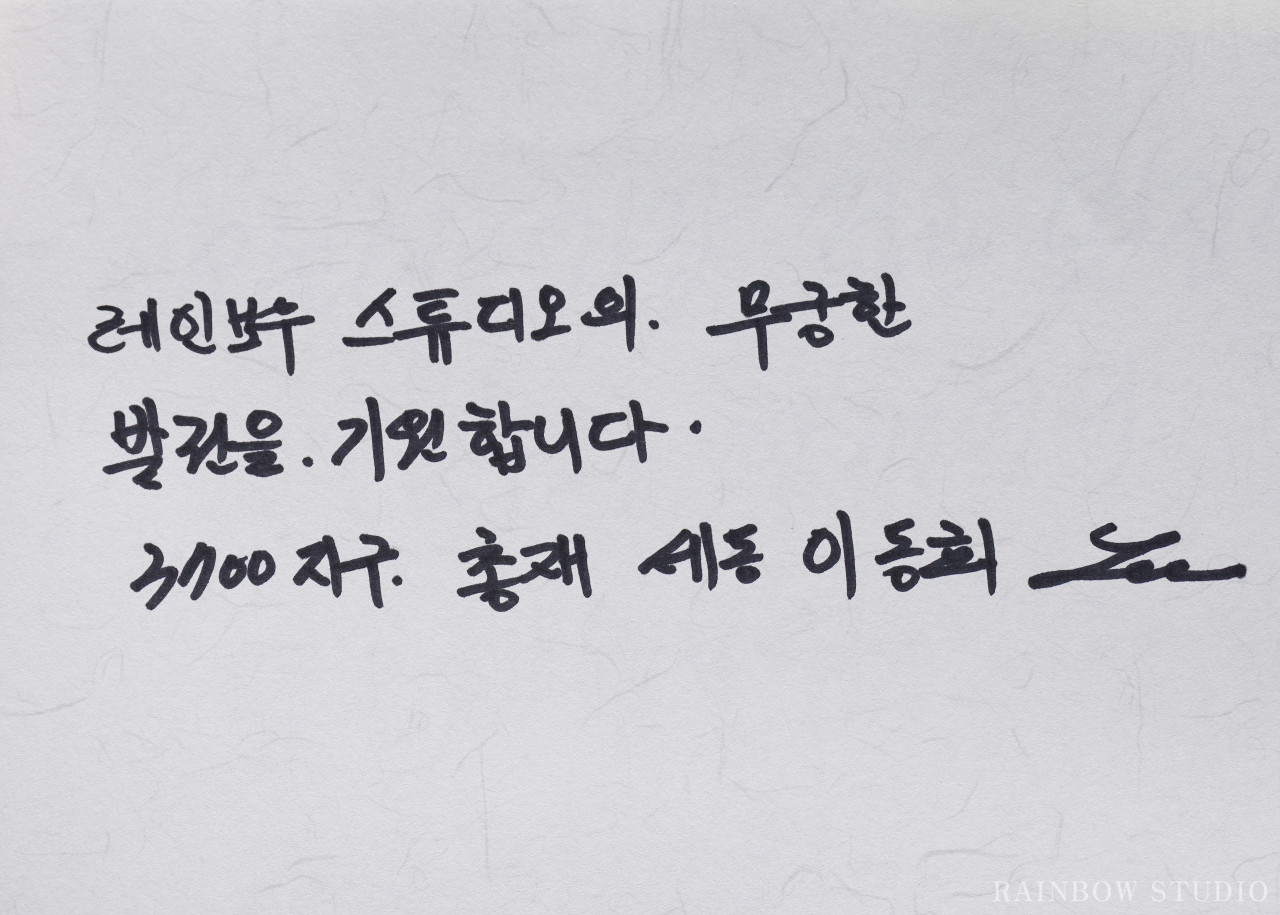 레인보우 스튜디오의. 무궁한
발전을. 기원합니다.
3700 지구. 총재 세동 이동희
RAINBOW STUDIO